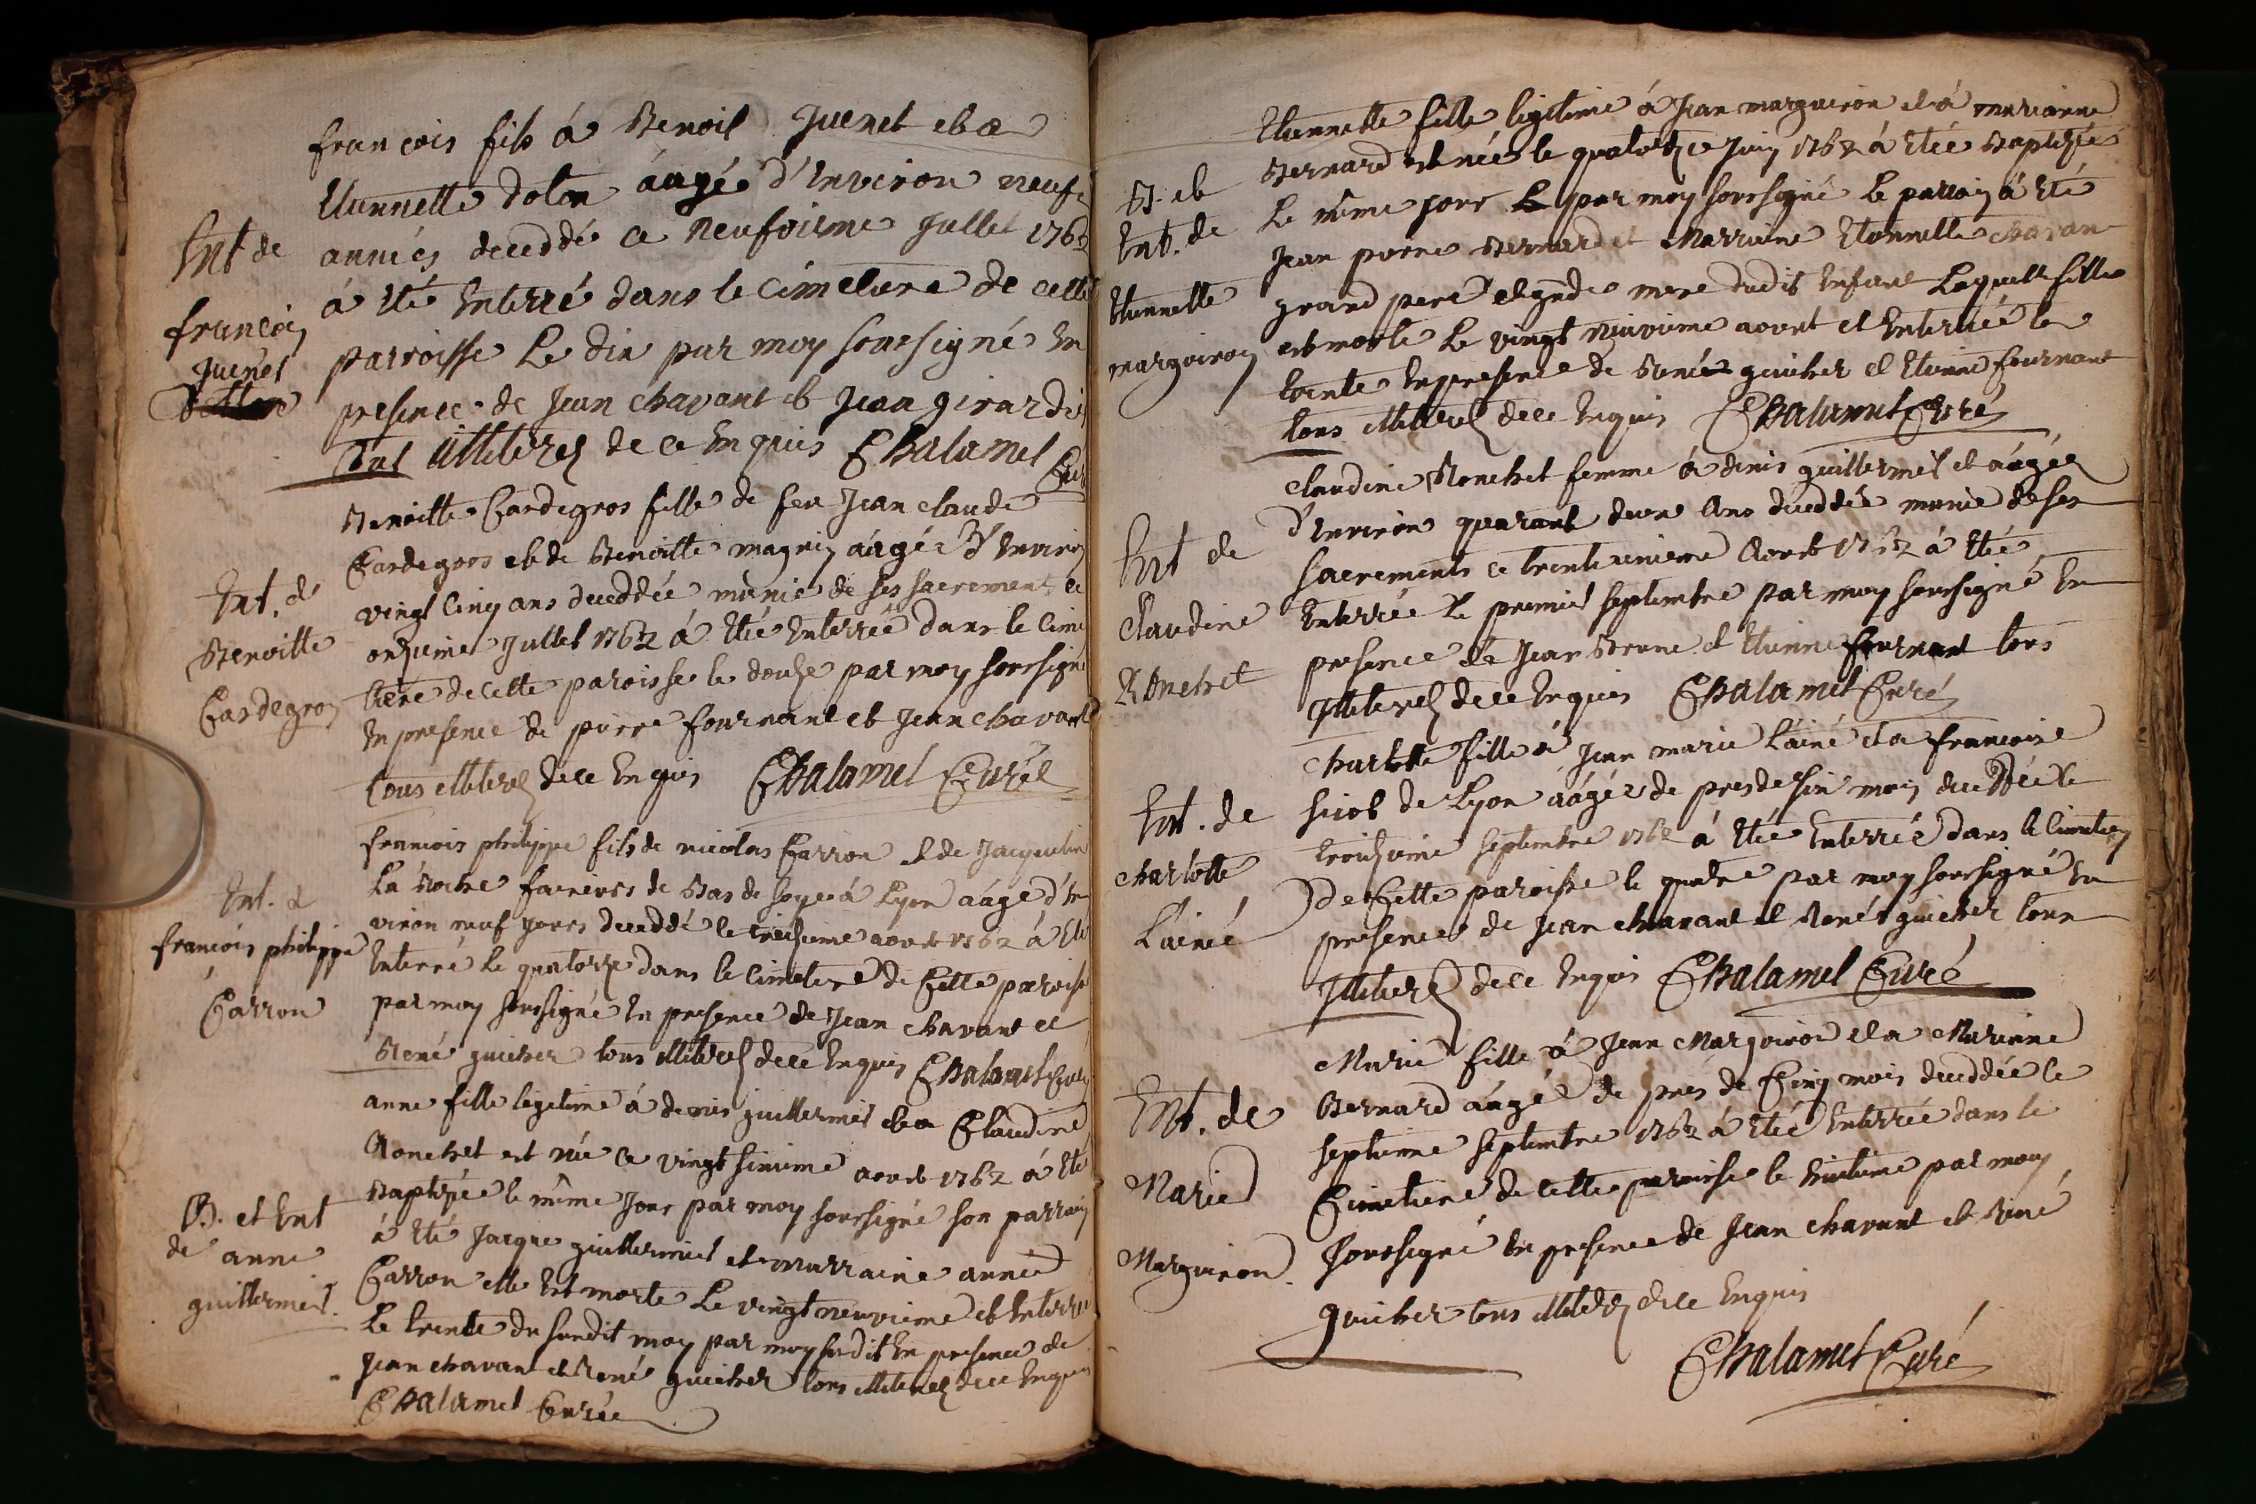 françois fils á Benoit Juenet et a
Etiennette dolon áagé d'Environ neuf
années deceddé ce neufvieme Juillet 1762
Ent de
á Eté Enterré dans le Cimetiere de cette
françois
parroisse Le dix par moy soussigné En
Juenet
presence de Jean chavant et Jean girardi
tous illiterez de ce Enquis Chalamel Curé
Benoitte Cardegros fille de feu Jean claude
Cardegros et de Benoitte magnin áagée d'Environ
Ent. de
vingt Cinq ans deceddée munie de ses sacrements ce
Benoitte
onzieme Juillet 1762 á Etée Enterrée dans le Cime
Cardegros
tiere de cette paroisse le douze par moy soussigné
En presence de pierre fournant et Jean chavant
tous illiterez de ce Enquis Chalamel Curé
françois philippe fils de nicolas Carron et de Jacqueline
La Roche faiseurs de Bas de soye á Lyon áagé d'En
Ent. d
viron neuf jours deceddé le treizieme aoust 1762 á Eté
françois philippe
Enterré Le quatorze dans le Cimetiere de Cette paroisse
Carron
par moy soussigné En presence de Jean chavant et
René guicher tous illiterez de ce Enquis Chalamel Curé
anne fille legitime á denis guillermet et a Claudine
Ronchet est née ce vingt sixieme aoust 1762 á Eté
Baptizée le même Jour par moy soussigné son parrain
B. et Ent
á Eté Jacque guillermet et marraine anne
de anne
Carron elle Est morte Le vingt neuvieme et Enterrée
guillermet.
Le trente du susdit moy par moy susdit En presence de
Jean chavant et René guicher tous illiterez de ce Enquis
Chalamel Curée
Etiennette fille legitime á Jean marguiron et á marianne
Bernard est née le quatorze Juin 1762 á Etée Baptizée
B. et
Le même jour par moy soussigné Le parrain á Eté
Ent. de
Jean pierre Bernard et Marraine Etiennette chavan
Etiennette
grand pere et gnde mere dudit Enfant Laquelle fille
marguiron
est morte Le vingt neuvieme aoust et Enterrée le
trente En presence de René guicher et Etienne fournant
tous illiterez de ce Enquis Chalamel Curé
Claudine Ronchet femme á denis guillermet et áagée
d'Environ quarant deux Ans deceddée munie de ses
Ent de
sacrements ce trente unieme Aoust 1762 á Etée
Claudine
Enterrée Le premier septembre par moy soussigné En
Ronchet
presence de Jean Brune et Etienne fournant tous
Illiterez de ce Enquis Chalamel Curé
Charlotte fille á Jean marie Lainé et a françoise
Ent. de
sicob de Lyon áagée de pres de six mois deceddée le
charlotte
troizieme septembre 1762 á Etée Enterrée dans le Cimetiere
Lainé
de Cette paroisse le quatre par moy soussigné En
presence de Jean chavant et René guicher tous
Illiterez de ce Enquis Chalamel Curé
Marie fille á Jean Marguiron et a Marianne
Ent. de
Bernard áagée de prés de Cinq mois deceddée le
septieme septembre 1762 á Etée Enterrée dans le
Marie
Cimetiere de cette paroisse le huitieme par moy
Marguiron.
soussigné En presence de Jean chavant et René
guicher tous illiterez de ce Enquis
Chalamel Curé